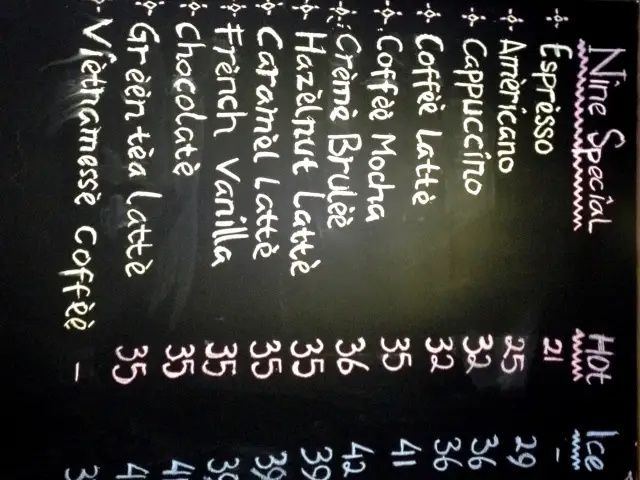 Nine Special Hot Ice
Esprèsso 21 -
Amèricano 25 29
Cappuccino 32 36
Coffèè Lattè 32 36
Coffèè Mocha 35 41
Crèmè Brulèè 36 42
Hazèlnut Lattè 35 39
Caramèl Lattè 35 39
Frènch Vanilla 35
Chocolatè 35
Grèèn tèa Lattè 35
Viètnamèssè coffèè -